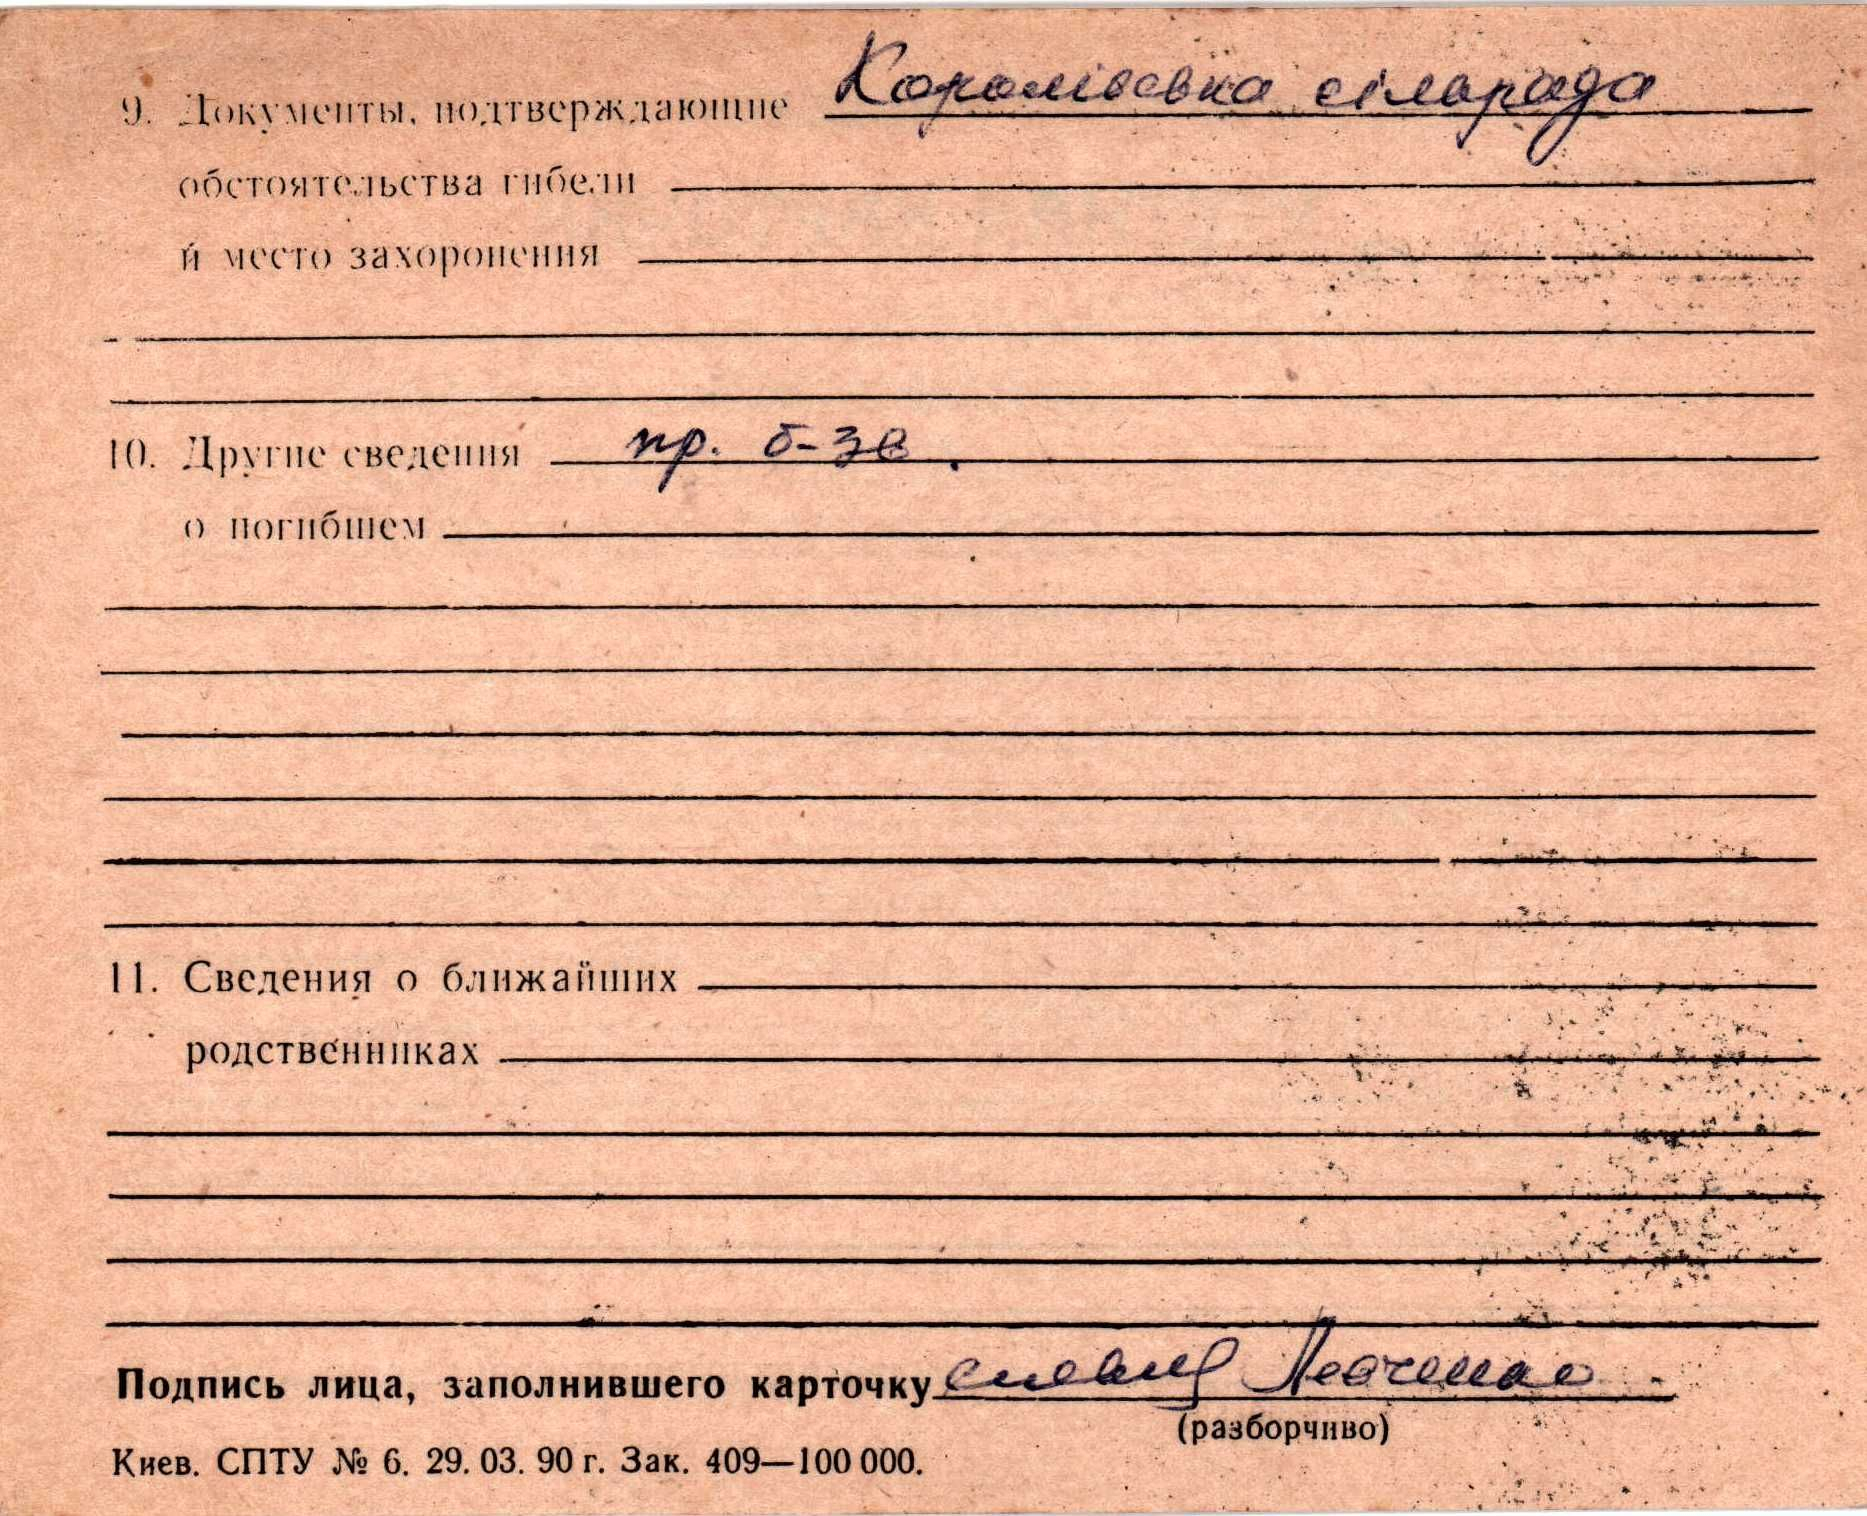 9. Документы, подтверждающие Королівська сільрада
обстоятельства гибели
и место захоронения
10. Другие сведения пр. б-зв.
о погибшем
11. Сведения о ближайших
родственниках
Подпись лица, заполнившего карточку Левченко
(разборчиво)
Киев. СПТУ № 6. 29. 03. 90 г. Зак. 409—100 000.